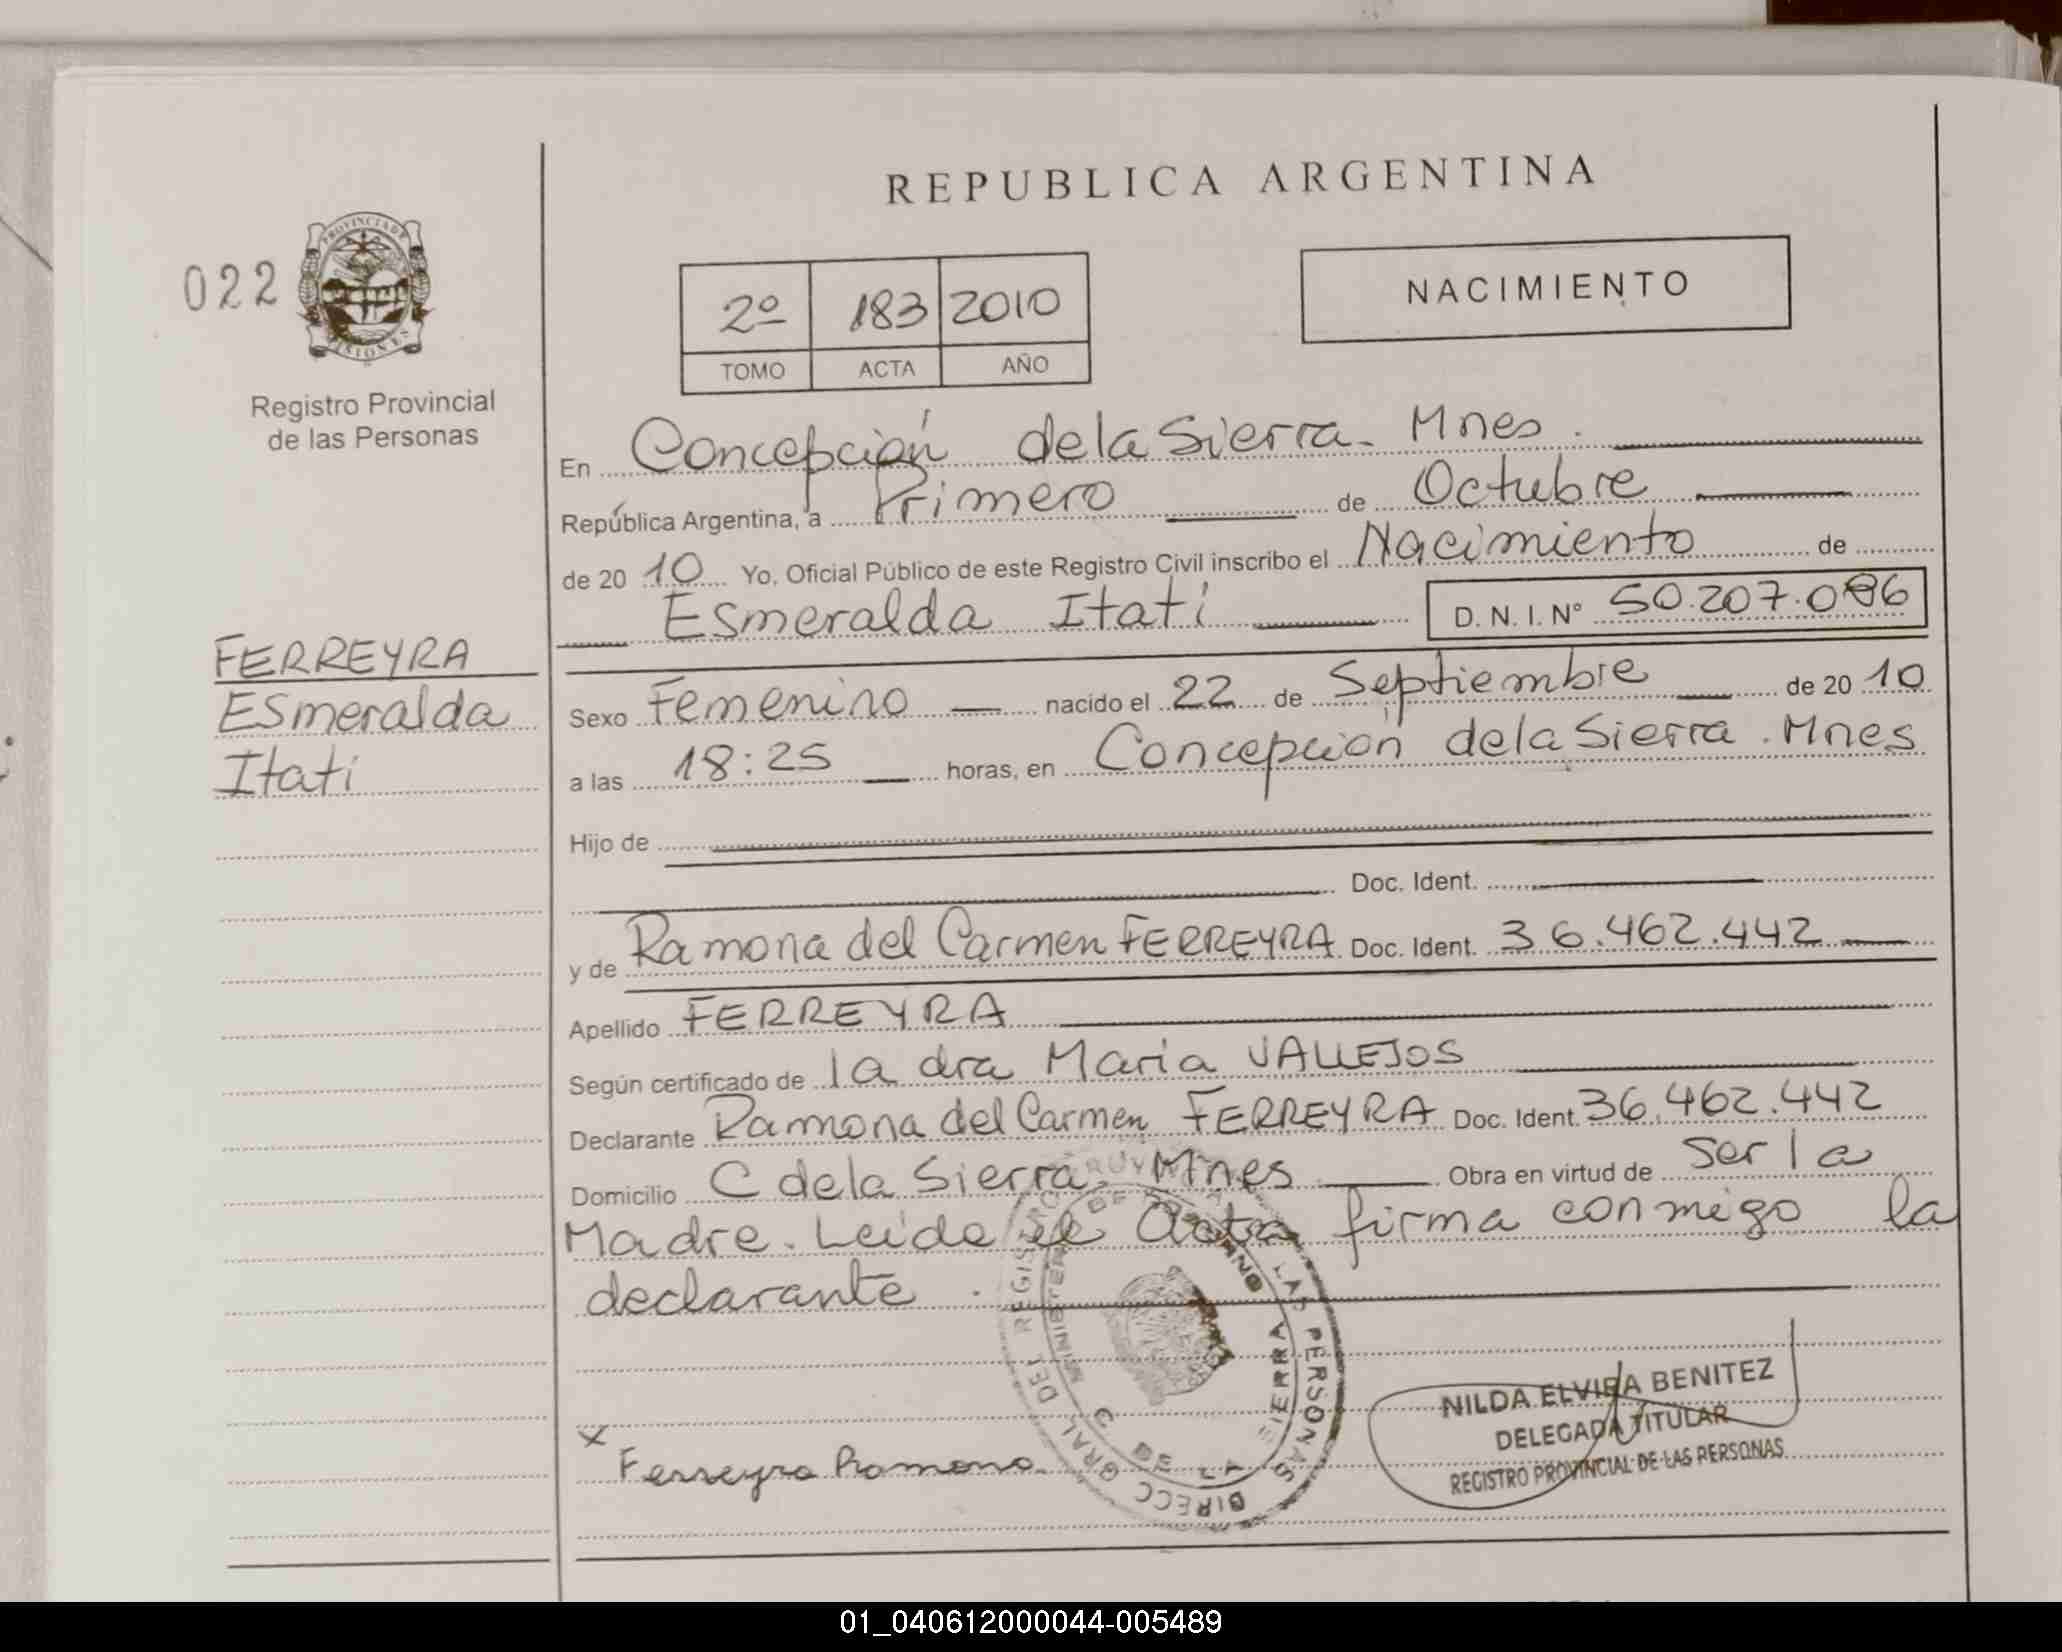 REPUBLICA ARGENTINA
022
PROVINCIA DE
MISIONES
Registro Provincial
de las Personas
2º 183 2010
TOMO ACTA AÑO
NACIMIENTO
En Concepción de la Sierra - Mnes.
República Argentina, a Primero de Octubre
de 20 10 Yo, Oficial Público de este Registro Civil inscribo el Nacimiento de
Esmeralda Itatí D. N. I. Nº 50.207.086
FERREYRA
Esmeralda
Itatí
Sexo Femenino nacido el 22 de Septiembre de 20 10
a las 18:25 horas, en Concepción de la Sierra . Mnes
Hijo de
Doc. Ident.
y de Ramona del Carmen FERREYRA Doc. Ident. 36.462.442
Apellido FERREYRA
Según certificado de la dra Maria VALLEJOS
Declarante Ramona del Carmen FERREYRA Doc. Ident. 36.462.442
Domicilio C de la Sierra, Mnes Obra en virtud de ser la
Madre. Leida el Acta firma conmigo la
declarante .
x Ferreyra Ramona
DIRECC GRAL DEL REGISTRO LAS PERSONAS
C DE LA SIERRA
NILDA ELVIRA BENITEZ
DELEGADA TITULAR
REGISTRO PROVINCIAL DE LAS PERSONAS
01_040612000044-005489